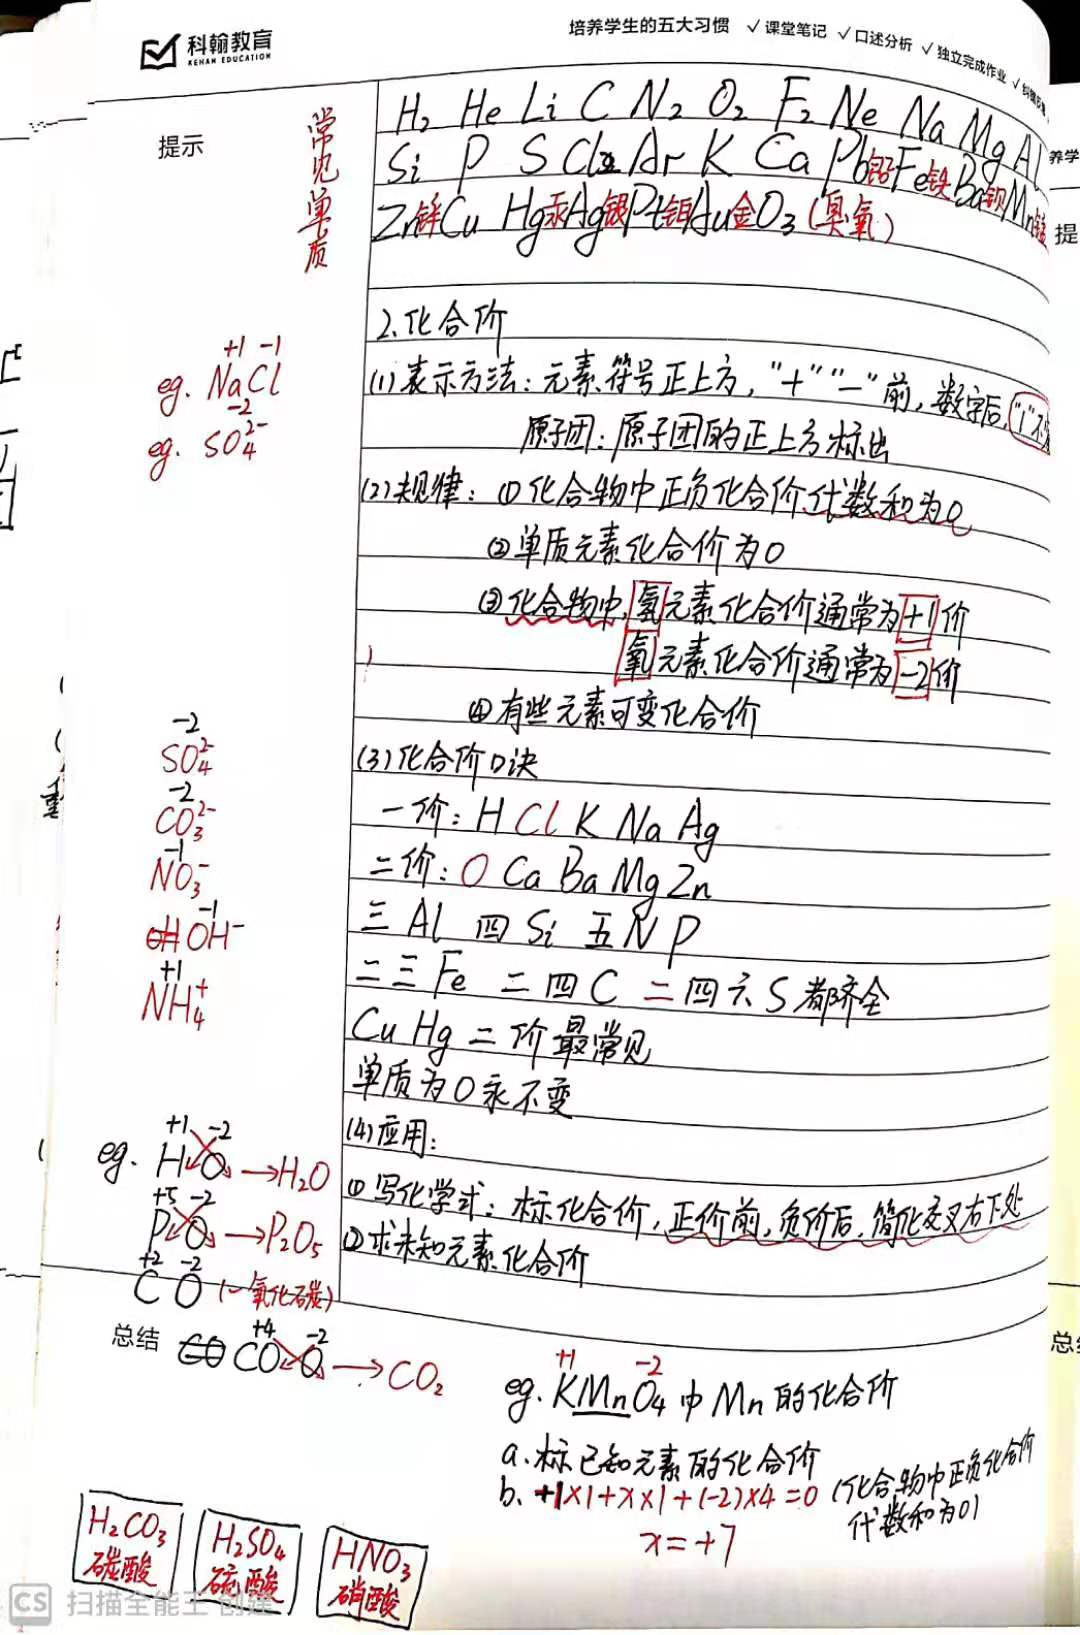 科翰教育
KEHAN EDUCATION
培养学生的五大习惯 ✓课堂笔记 ✓口述分析 ✓独立完成作业
提示
常见单质
H₂ He Li C N₂ O₂ F₂ Ne Na Mg Al
Si P S Cl₂ Ar K Ca Pb铅Fe铁Ba钡Mn锰
Zn锌Cu Hg汞Ag银Pt铂Au金O₃(臭氧)
养学
提
2.化合价
+1 -1
eg. NaCl
(1)表示方法:元素符号正上方,"+""-"前,数字后,"1"不
-2
eg. SO₄²⁻
原子团:原子团的正上方标出
(2)规律:①化合物中正负化合价代数和为0
②单质元素化合价为0
③化合物中,氢元素化合价通常为+1价
氧元素化合价通常为-2价
④有些元素可变化合价
-2
SO₄²⁻
(3)化合价口诀
-2
CO₃²⁻
一价:H Cl K Na Ag
-1
NO₃⁻
二价:O Ca Ba Mg Zn
-1
OH OH⁻
三 Al 四 Si 五 N P
+1
NH₄⁺
二三Fe 二四C 二四六S都齐全
Cu Hg 二价最常见
单质为0永不变
(4)应用:
+1 -2
eg. H O →H₂O
①写化学式:标化合价,正价前,负价后,简化交叉右下处
+5 -2
P O →P₂O₅
②求未知元素化合价
+2 -2
C O (一氧化碳)
总结
+4 -2
CO CO O →CO₂
+1 -2
eg. KMnO₄中Mn的化合价
a.标已知元素的化合价
b. +1×1+x×1+(-2)×4=0 (化合物中正负化合价
代数和为0)
x=+7
H₂CO₃
碳酸
H₂SO₄
硫酸
HNO₃
硝酸
CS 扫描全能王 创建